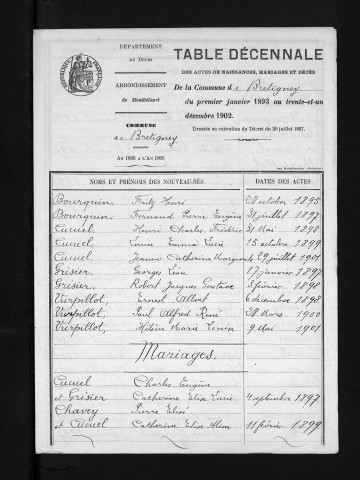 DÉPARTEMENT
du Doubs
ARRONDISSEMENT
de Montbéliard
COMMUNE
de Bretigney
An 1893 à l'An 1903
TABLE DÉCENNALE
DES ACTES DE NAISSANCES, MARIAGES ET DÉCÈS
De la Commune de Bretigney
du premier janvier 1893 au trente-et-un
décembre 1902.
Dressée en exécution du Décret du 20 juillet 1807.
NOMS ET PRÉNOMS DES NOUVEAU-NÉS DATES DES ACTES
Bourquin, Fritz Henri 28 octobre 1895
Bourquin, Fernand Pierre Eugène 31 juillet 1897
Cucuel, Henri Charles Frédéric 31 Mai 1898
Cucuel, Emma Lucie 15 octobre 1899
Cucuel, Jeanne Catherine 29 juillet 1901
Grisier, Georges Léon 17 janvier 1897
Grisier, Robert Jacques Gustave 3 février 1898
Vurpillot, Ernest Albert 6 décembre 1898
Vurpillot, Paul Alfred René 28 Mars 1900
Vurpillot, Hélène Maria 9 Mai 1901
Mariages.
Cucuel Charles Eugène
et Grisier Catherine Elise Lucie 4 septembre 1897
Chavey Pierre Elisé
et Cucuel Catherine Elise 11 février 1899